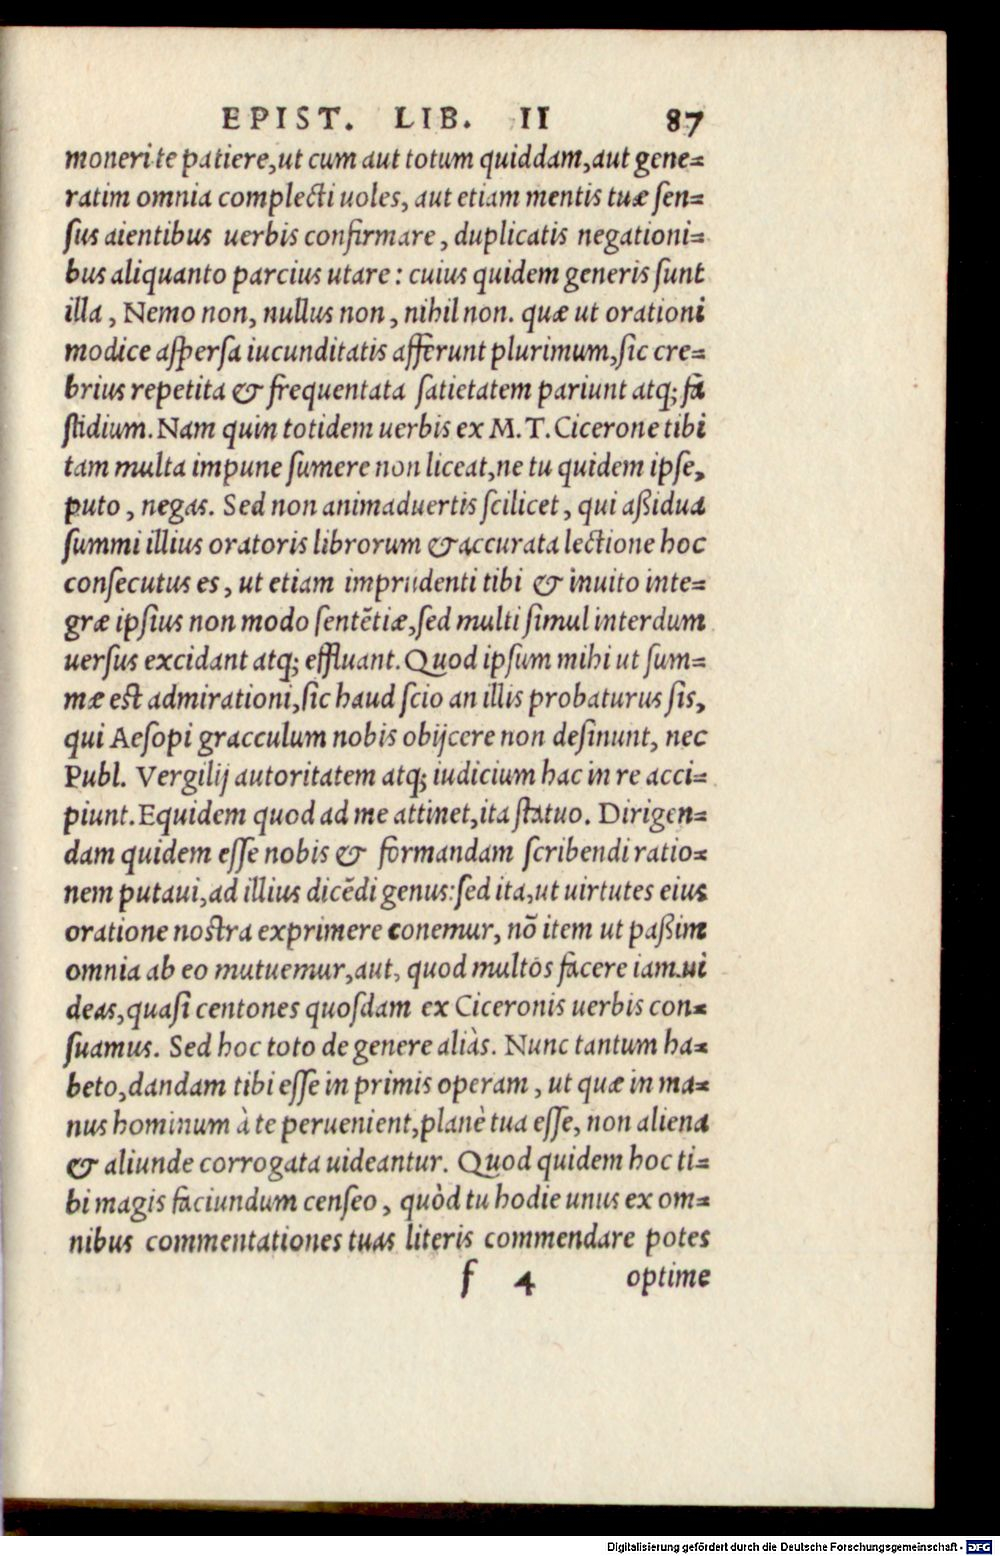 EPIST. LIB. II 87
moneri te patiere,ut cum aut totum quiddam,aut gene=
ratim omnia complecti uoles, aut etiam mentis tuæ ſen=
ſus aientibus uerbis confirmare, duplicatis negationi=
bus aliquanto parcius utare: cuius quidem generis ſunt
illa, Nemo non, nullus non, nihil non. quæ ut orationi
modice aſperſa iucunditatis afferunt plurimum,ſic cre=
brius repetita & frequentata ſatietatem pariunt atq; fa
ſtidium. Nam quin totidem uerbis ex M. T. Cicerone tibi
tam multa impune ſumere non liceat,ne tu quidem ipſe,
puto, negas. Sed non animaduertis ſcilicet, qui aßidua
ſummi illius oratoris librorum & accurata lectione hoc
conſecutus es, ut etiam imprudenti tibi & inuito inte=
græ ipſius non modo ſentẽtiæ,ſed multi ſimul interdum
uerſus excidant atq; effluant. Quod ipſum mihi ut ſum=
mæ eſt admirationi,ſic haud ſcio an illis probaturus ſis,
qui Aeſopi gracculum nobis obijcere non deſinunt, nec
Publ. Vergilij autoritatem atq; iudicium hac in re acci=
piunt. Equidem quod ad me attinet,ita ſtatuo. Dirigen=
dam quidem eſſe nobis & formandam ſcribendi ratio=
nem putaui,ad illius dicẽdi genus:ſed ita,ut uirtutes eius
oratione noſtra exprimere conemur, nõ item ut paßim
omnia ab eo mutuemur,aut, quod multos facere iam ui
deas,quaſi centones quoſdam ex Ciceronis uerbis con=
ſuamus. Sed hoc toto de genere aliàs. Nunc tantum ha=
beto,dandam tibi eſſe in primis operam, ut quæ in ma=
nus hominum à te peruenient,planè tua eſſe, non aliena
& aliunde corrogata uideantur. Quod quidem hoc ti=
bi magis faciundum cenſeo, quòd tu hodie unus ex om=
nibus commentationes tuas literis commendare potes
f 4 optime
Digitalisierung gefördert durch die Deutsche Forschungsgemeinschaft - DFG